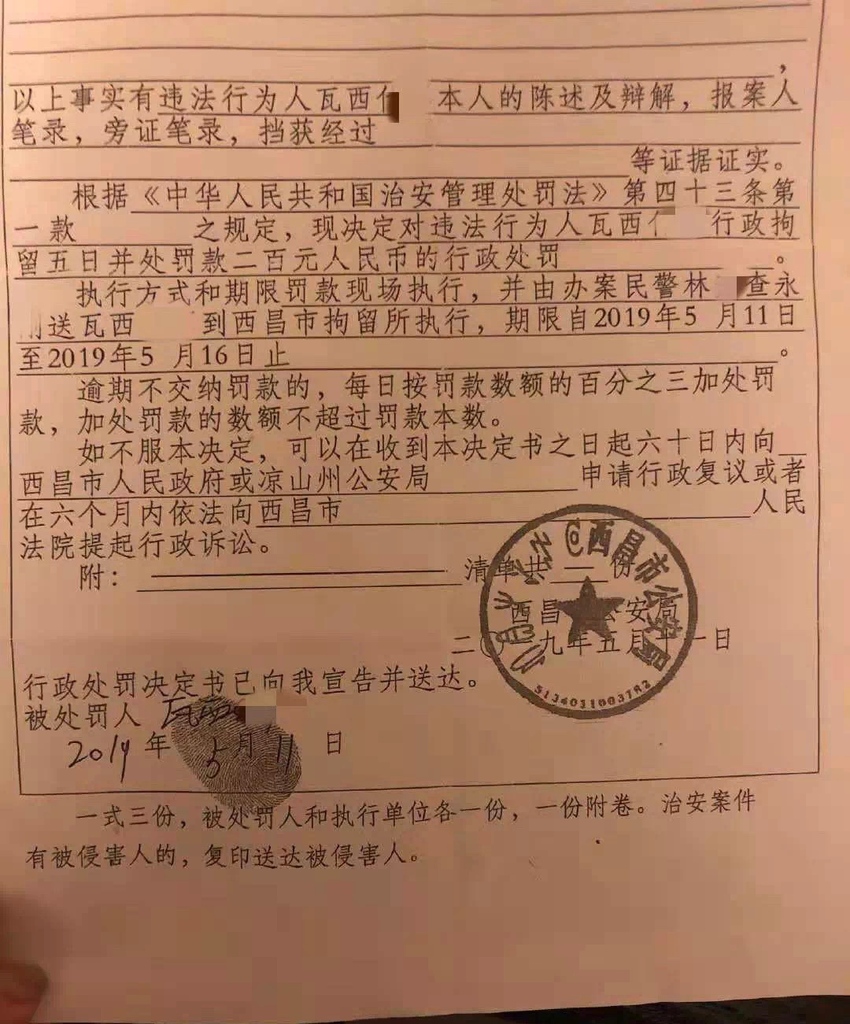 ，
以上事实有违法行为人瓦西 本人的陈述及辩解，报案人
笔录，旁证笔录，挡获经过
等证据证实。
根据《中华人民共和国治安管理处罚法》第四十三条第
一款 之规定，现决定对违法行为人瓦西 行政拘
留五日并处罚款二百元人民币的行政处罚 。
执行方式和期限罚款现场执行，并由办案民警林 查永
送瓦西 到西昌市拘留所执行，期限自2019年5 月11日
至2019年5 月16日止 。
逾期不交纳罚款的，每日按罚款数额的百分之三加处罚
款，加处罚款的数额不超过罚款本数。
如不服本决定，可以在收到本决定书之日起六十日内向
西昌市人民政府或凉山州公安局 申请行政复议或者
在六个月内依法向西昌市 人民
法院提起行政诉讼。
附： 清单共 份
西昌 公安局
二〇一九年五月十一日
西昌市公安局
5134031003782
行政处罚决定书已向我宣告并送达。
被处罚人 瓦西
2019年 5月11日
一式三份，被处罚人和执行单位各一份，一份附卷。治安案件
有被侵害人的，复印送达被侵害人。